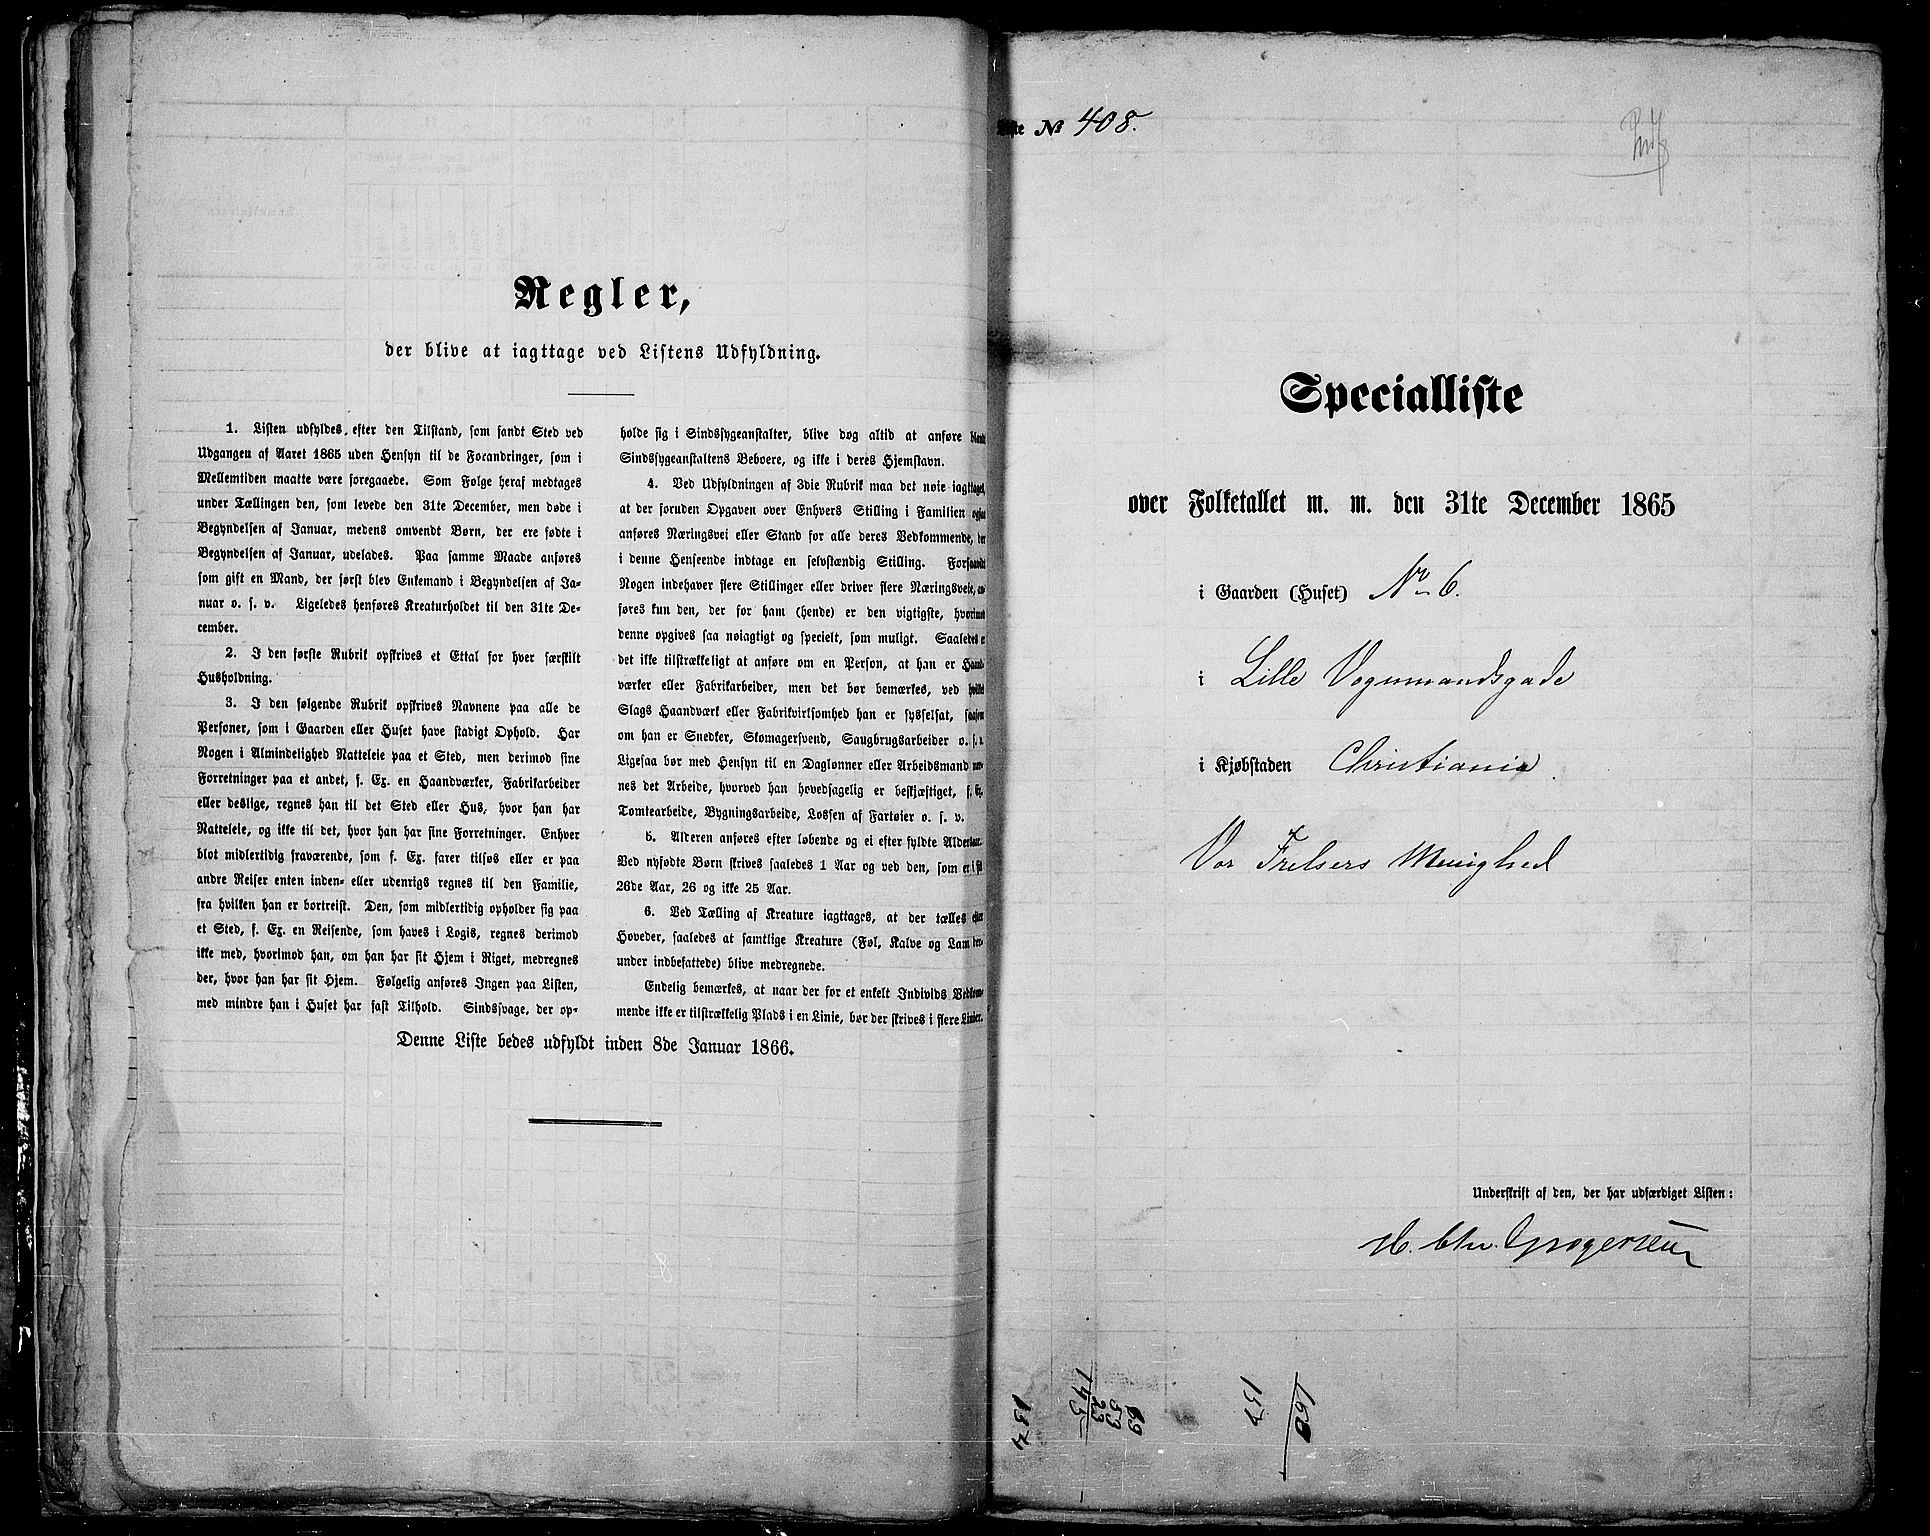 Regler,
der blive at iagttage ved Listens Udfyldning.
1. Listen udfyldes efter den Tilstand, som fandt Sted ved
Udgangen af Aaret 1865 uden Hensyn til de Forandringer, som i
Mellemtiden maatte være foregaaede. Som Følge heraf medtages
under Tællingen den, som levede den 31te December, men døde i
Begyndelsen af Januar, medens omvendt Børn, der ere fødte i
Begyndelsen af Januar, udelades. Paa samme Maade anføres
som gift en Mand, der først blev Enkemand i Begyndelsen af Ja-
nuar o. s. v. Ligeledes henføres Kreaturholdet til den 31te De-
cember.
2. I den første Rubrik opskrives et Ettal for hver særskilt
Husholdning.
3. I den følgende Rubrik opskrives Navnene paa alle de
Personer, som i Gaarden eller Huset have stadigt Ophold. Har
Nogen i Almindelighed Natteleie paa et Sted, men derimod sine
Forretninger paa et andet, f. Ex. en Haandværker, Fabrikarbeider
eller deslige, regnes han til det Sted eller Hus, hvor han har
Natteleie, og ikke til det, hvor han har sine Forretninger. Enhver
blot midlertidig fraværende, som f. Ex. farer tilsøs eller er paa
andre Reiser enten inden- eller udenrigs regnes til den Familie,
fra hvilken han er bortreist. Den, som midlertidig opholder sig paa
et Sted, f. Ex. en Reisende, som haves i Logis, regnes derimod
ikke med, hvorimod han, om han har sit Hjem i Riget, medregnes
der, hvor han har sit Hjem. Følgelig anføres Ingen paa Listen,
med mindre han i Huset har fast Tilhold. Sindssvage, der op-
holde sig i Sindssygeanstalter, blive dog altid at anføre blandt
Sindssygeanstaltens Beboere, og ikke i deres Hjemstavn.
4. Ved Udfyldningen af 3die Rubrik maa det nøie iagttages,
at der foruden Opgaven over Enhvers Stilling i Familien ogsaa
anføres Næringsvei eller Stand for alle deres Vedkommende, der
i denne Henseende indtage en selvstændig Stilling. Forsaavidt
Nogen indehaver flere Stillinger eller driver flere Næringsveie, an-
føres kun den, der for ham (hende) er den vigtigste, hvorimod
denne opgives saa nøiagtigt og specielt, som muligt. Saaledes er
det ikke tilstrækkeligt at anføre om en Person, at han er Haand-
værker eller Fabrikarbeider, men det bør bemærkes, ved hvilket
Slags Haandværk eller Fabrikvirksomhed han er sysselsat, saasom
om han er Snedker, Skomagersvend, Saugbrugsarbeider o. s. v.
Ligesaa bør med Hensyn til en Dagløner eller Arbeidsmand næv-
nes det Arbeide, hvorved han hovedsagelig er beskjæftiget, f. Ex.
Tomtearbeide, Bygningsarbeide, Lossen af Fartøier o. s. v.
5. Alderen anføres efter løbende og ei efter fyldte Aldersaar.
Ved nyfødte Børn skrives saaledes 1 Aar og ved den, som er i sit
26de Aar, 26 og ikke 25 Aar.
6. Ved Tælling af Kreature iagttages, at der tælles efter
Hoveder, saaledes at samtlige Kreature (Føl, Kalve og Lam der-
under indbefattede) blive medregnede.
Endelig bemærkes, at naar der for et enkelt Individs Vedkom-
mende ikke er tilstrækkelig Plads i en Linie, bør der skrives i flere Linier.
Denne Liste bedes udfyldt inden 8de Januar 1866.
Liste No 408.
Specialliste
over Folketallet m. m. den 31te December 1865
i Gaarden (Huset) No 6.
i Lille Vognmandsgade
i Kjøbstaden Christiania.
Vor Frelsers Menighed
Underskrift af den, der har udfærdiget Listen:
H. Chr.
69
53
23
145
157
150